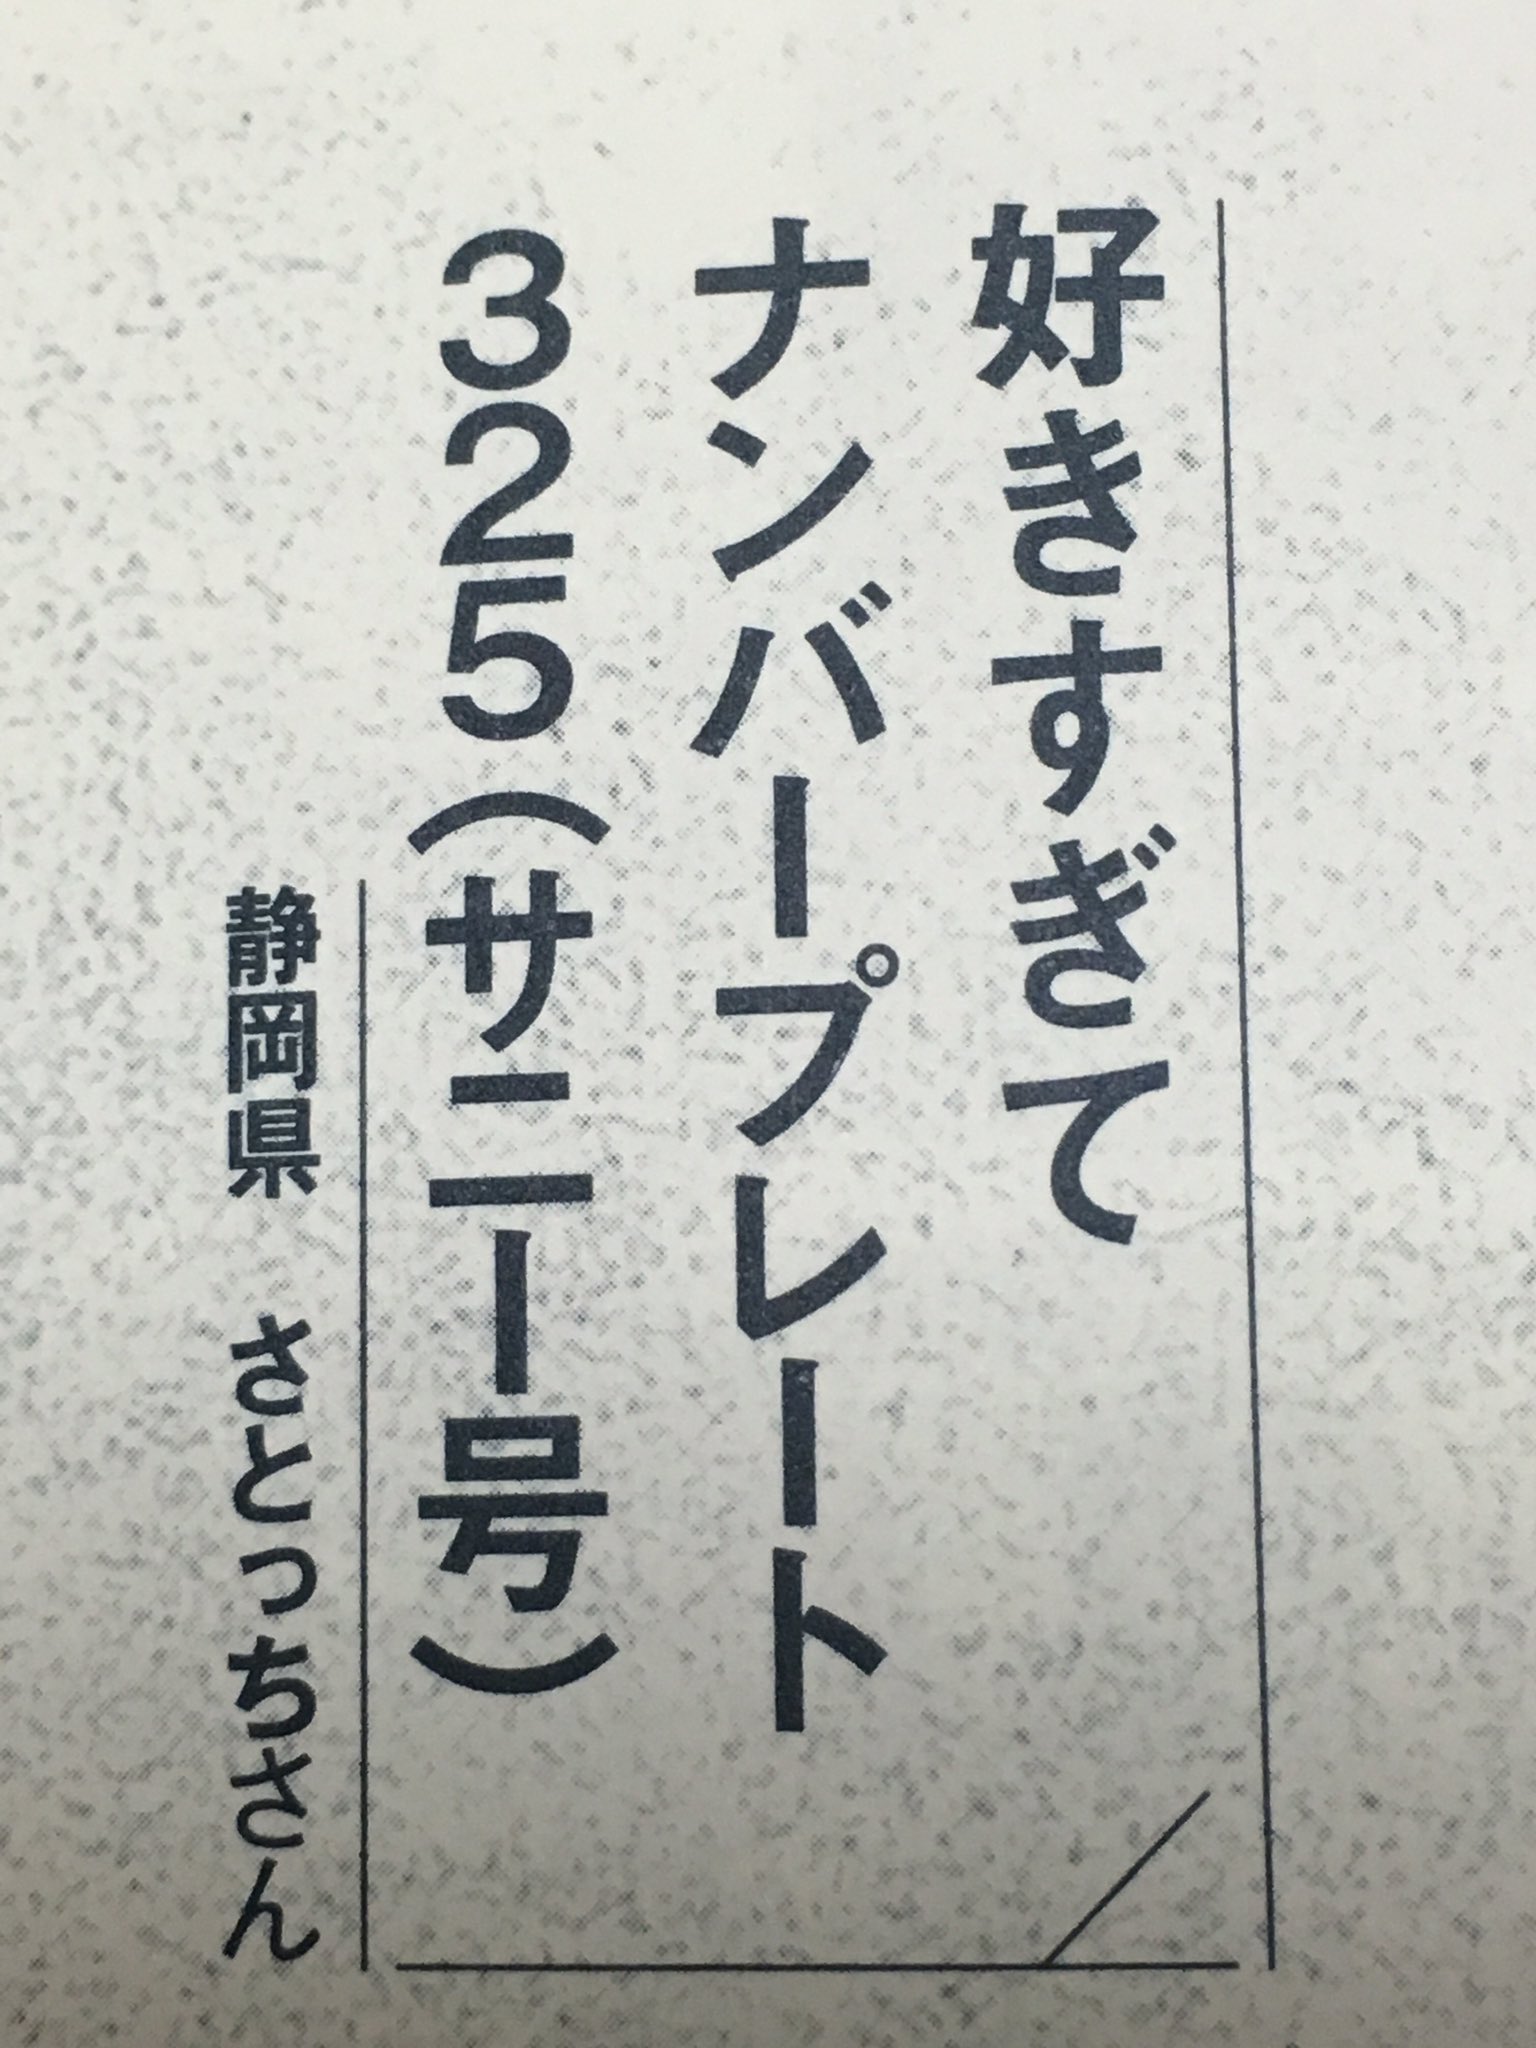 好きすぎて
ナンバープレート
325(サニー号)
静岡県 さとっちさん